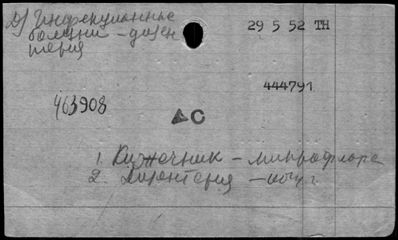 Инфекционные
болезни - дизен
терия
29 5 52 TH
444791
463908
АС
1. Кишечник - микрофлора
2. Дизентерия -